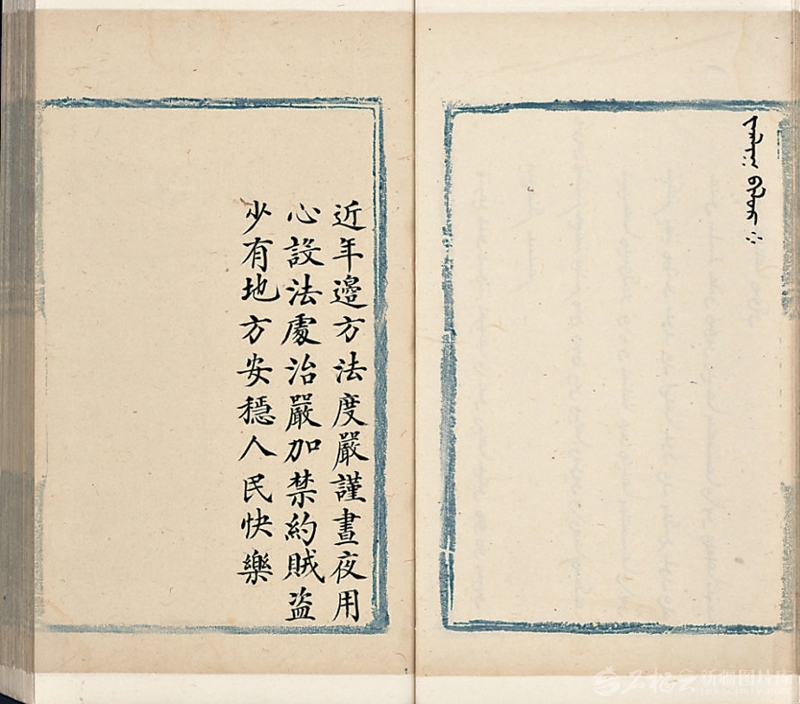 近年邊方法度嚴謹晝夜用
心設法處治嚴加禁約賊盗
少有地方安穩人民快樂